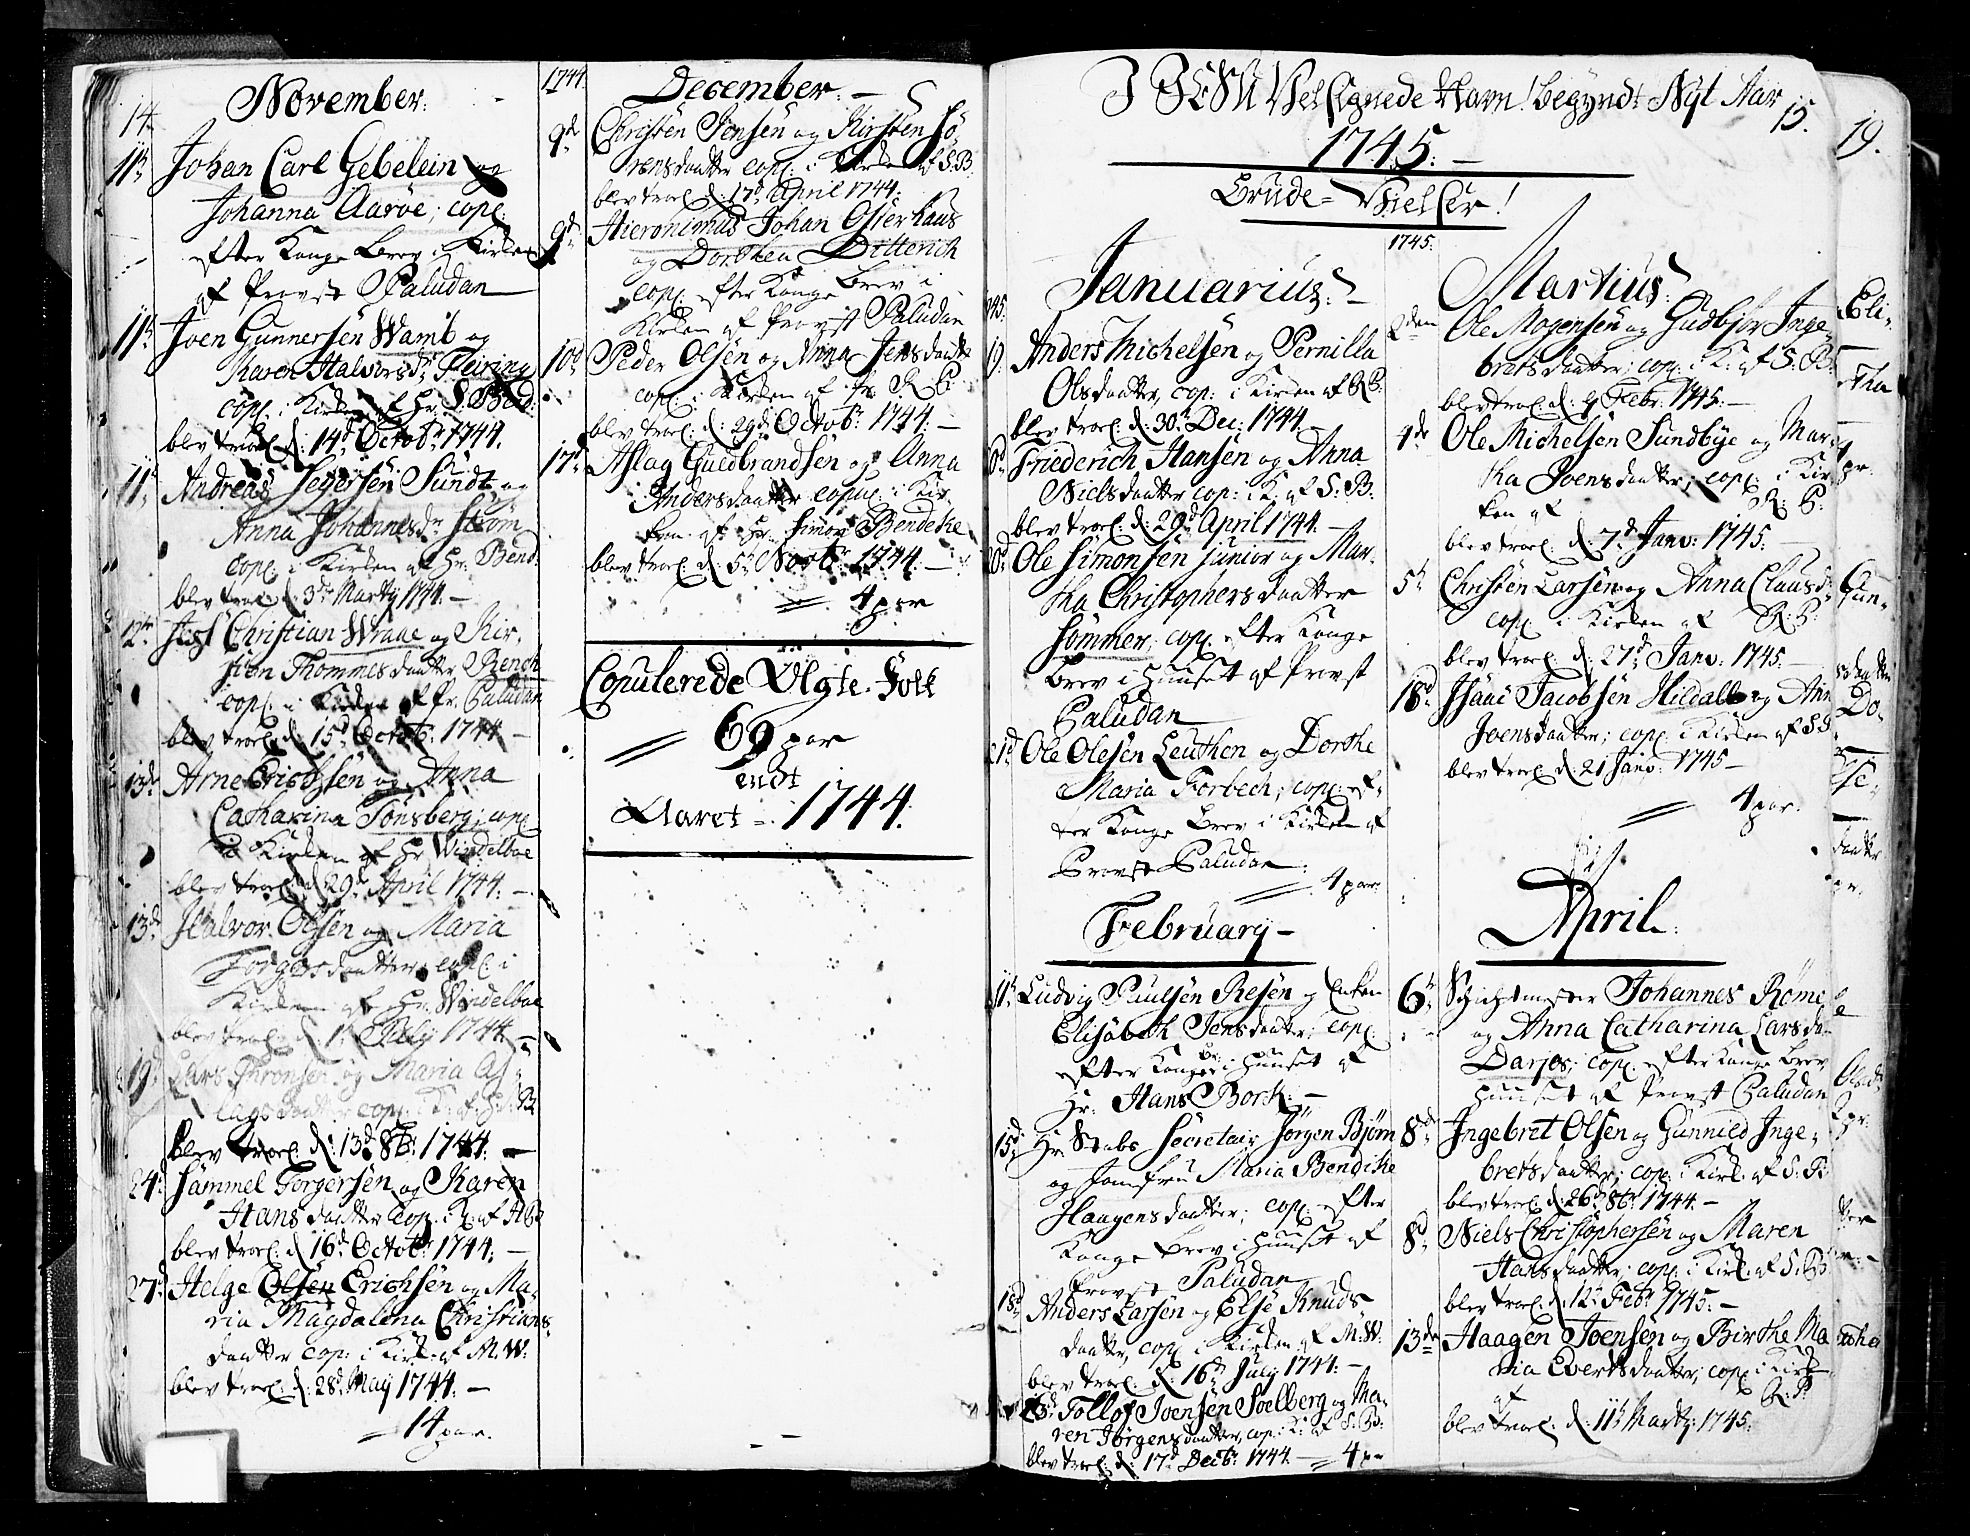 14.
November:
11te Johan Carl Gebelein og
Johanna Aarøe; copl:
efter Konge Brev i Kirken
af Provst Paludan
11te Joen Gunnersen Wamb og
Karen Halvorsdr Fleiring
copl. i Kirken af Hr: S: Bend:
blev troel. d: 14d Octobr 1744.
11te Andreas Segersen Sundt og
Anna Johannesdr Strøm
copl. i Kirken af Hr: Bend:
blev troel. d 3de Marty 1744. —
12te Christian Wraae og Kir-
sten Thommesdaatter Rench
copl. i Kirken af Pr. Paludan
blev troel. d: 15d Octobr: 1744 —
13de Arne Erichsen og Anna
Catharina Tønsberg; copl
i Kirken af Hr Windelboe
blev troel. d 29d April 1744. —
13d. Halvor Olsen og Maria
Torgersdaatter; copl. i
Kirken af Hr. Windelboe
blev troel. d 1. July 1744. —
19d Lars Thronsen og Maria As-
lagsdaatter cop. i K. af S: B
blev troel. d: 13d 8br: 1744. —
24d Sammel Torgersen og Karen
Hansdaatter copl. i K. af
blev troel. d 16d Octobr 1744. —
27d Helge Olsen Erichsen og Ma-
ria Magdalena Christians-
daatter cop: i Kirk: af M: W:
blev troel. d. 28d May 1744. —
14 par.
1744
December: —
9de Christen Jensen og Kirsten Sø-
rensdaatter copl: i Kirken af S: B.
blev troel. d: 17d April 1744.
9de Hieronimus Johan Osterhaus
og Dorthea Ditterich
copl. efter Konge Brev i
Kirken af Provst Paludan
10d Peder Olsen og Anna Jensdaatter
copl. i Kirken af Hr. R P.
blev troel. d: 29d Octobr: 1744. —
17d Aslag Guldbrandsen og Anna
Andersdaatter copul. i Kir-
ken af Hr. Simon Bendeke
blev troel. d: 5te Novbr 1744. —
4 par
Copulerede Ægte-Folk
69 par
endt
Aaret — 1744.
I JESU Velsignede Navn! begyndt Nyt Aar
15.
1745. —
Brude-Vielser!
Januarius: —
19. Anders Michelsen og Pernilla
Olsdaatter, cop: i Kirken af R P:
blev troel. d: 30te Dec: 1744. —
20d Friederich Hansen og Anna
Nielsdaatter cop: i K. af S: B:
blev troel. d: 29d April 1744. —
20d Ole Simonsen junior og Mar-
tha Christophersdaatter
Sommer; copl. efter Konge
Brev i Huuset af Provst
Paludan
21d Ole Olesen Leuthen og Dorthe
Maria Forbech; copl: ef-
ter Konge Brev i Kirken af
Provst Paludan:
4 par:
February —
11te Ludvig Paulsen Resen og Enken
Elisabeth Jensdaatter; copl.
efter Konge Br: i Huuset af
Hr: Hans Bork: —
15d Hr: Stabs Secretair Jørgen Bjørn
og Jomfru Maria Bendike
Haagensdaatter; copl. efter
Konge Brev i Huuset af
Provst Paludan
18d Anders Larsen og Else Knuds-
daatter, copl. i Kirken af M: W:
blev troel. d: 16d July 1744. —
Tollof Joensen Soelberg og Ma-
ren Jørgensdaatter, cop: i K: af S: B:
blev troel: d: 17d Decbr: 1744. — 4 par
1745.
Martius:
2den Ole Mogensen og Gudbjør Inge-
bretsdaatter; cop: i K: af S: B:
blev troel. d. 9 Febr. 1745. —
4de Ole Michelsen Sundbye og Mar-
tha Joensdaatter; copl. i Kir-
ken af R: P:
blev troel. d. 7d Janv: 1745. —
5te Christen Larsen og Anna Clausdr
copl. i Kirken af R: P:
blev troel d. 27d Janv: 1745. —
18d Isaac Jacobsen Hildall og Ann
Joensdaatter; copl. i Kirken af S B
blev troel d. 21 Janv: 1745 —
4 par.
April.
6te Schichtmester Johannes Rome
og Anna Catharina Larsda-
Darjes; copl. efter Konge Brev
Huuset af Provst Paludan
8de Ingebret Olsen og Gunnild Inge-
bretsdaatter; cop: i Kirk: af S: B:
blev troel. d. 26d 8br 1744. —
8d Niels Christophersen og Maren
Hansdaatter; cop: i Kirk: af S: B:
blev troel. d. 12te Febr: 1745. —
13de Haagen Joensen og Birthe Ma
ria Evertsdaatter; cop: i Kirk
af R: P.
blev troel. d: 11te Marty: 1745.
19.
Eli-
tha
pr.
Gun-
daatter
Do-
daatter
pr.
Olsdr
pr.
ter